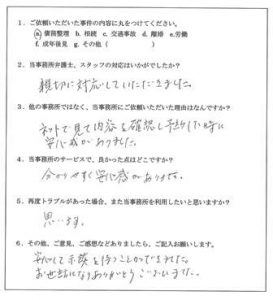 1. ご依頼いただいた事件の内容に丸をつけてください。
a. 債務整理 b. 相続 c. 交通事故 d. 離婚 e. 労働
f. 成年後見 g. その他（ ）
2. 当事務所弁護士、スタッフの対応はいかがでしたか？
親切に対応していただきました。
3. 他の事務所ではなく、当事務所にご依頼いただいた理由はなんですか？
ネットで見て内容を確認し予約した時に
安心感がありました。
4. 当事務所のサービスで、良かった点はどこですか？
分かりやすく安心感がありました。
5. 再度トラブルがあった場合、また当事務所を利用したいと思いますか？
思います。
6. その他、ご意見、ご感想などありましたら、ご記入お願いします。
安心して示談を待つことができました。
お世話になりありがとうございました。